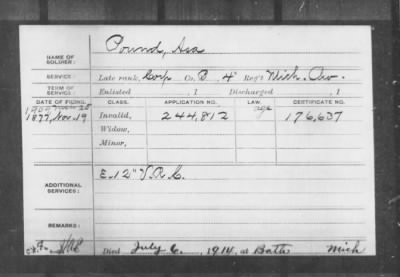 NAME OF SOLDIER: Pound, Asa
SERVICE: Late rank, Corp Co. B, 4" Reg't Mich. Cav.
TERM OF SERVICE: Enlisted , 1 Discharged , 1
DATE OF FILING. CLASS. APPLICATION NO. LAW. CERTIFICATE NO.
age
1877, Nov. 19 Invalid, 244,812 176,637
Widow,
Minor,
ADDITIONAL SERVICES: E-12" V.R.C.
REMARKS:
Died July 6, 1914, at Bath Mich